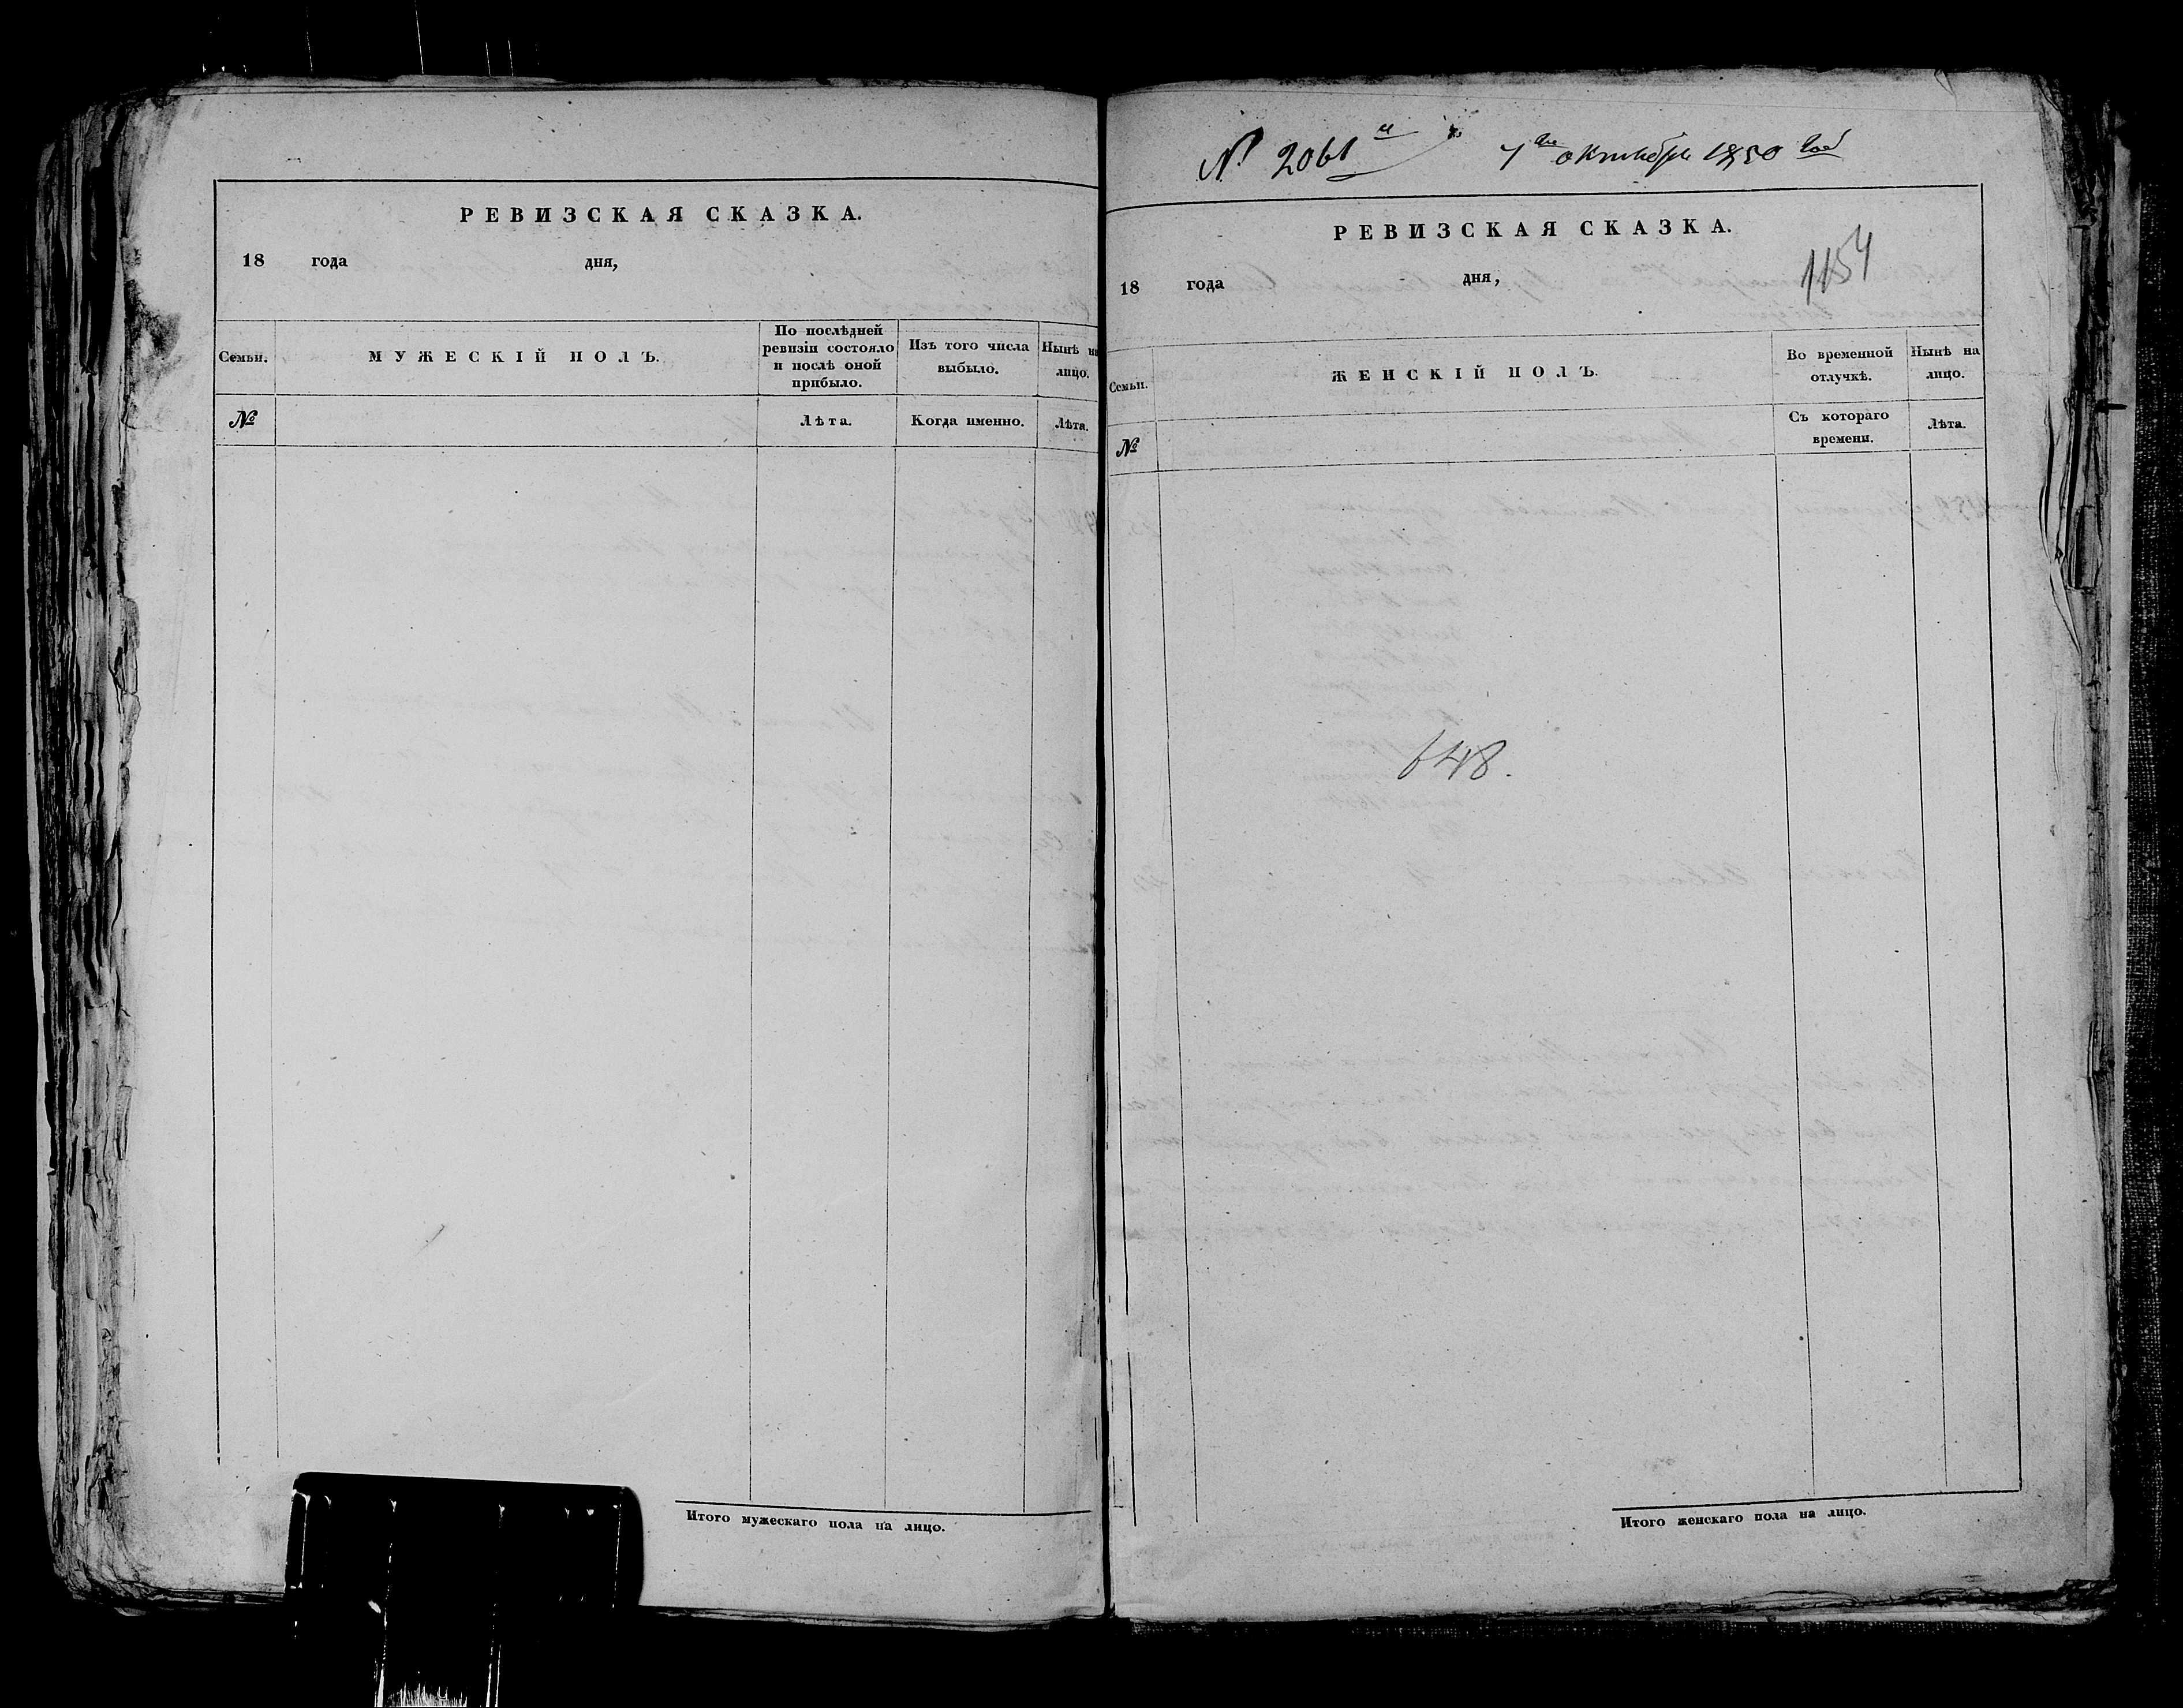 РЕВИЗСКАЯ СКАЗКА.
18 года дня,
Семьи.
МУЖЕСКІЙ ПОЛЪ.
По послѣдней
ревизіи состояло
и послѣ оной
прибыло.
Изъ того числа
выбыло.
Нынѣ на
лицо.
№
Лѣта.
Когда именно.
Лѣта.
Итого мужескаго пола на лицо.
№ 2061й 7го октября 1850 год
РЕВИЗСКАЯ СКАЗКА.
1154
18 года дня,
Семьи.
ЖЕНСКІЙ ПОЛЪ.
Во временной
отлучкѣ.
Нынѣ на
лицо.
№
Съ котораго
времени.
Лѣта.
648.
Итого женскаго пола на лицо.